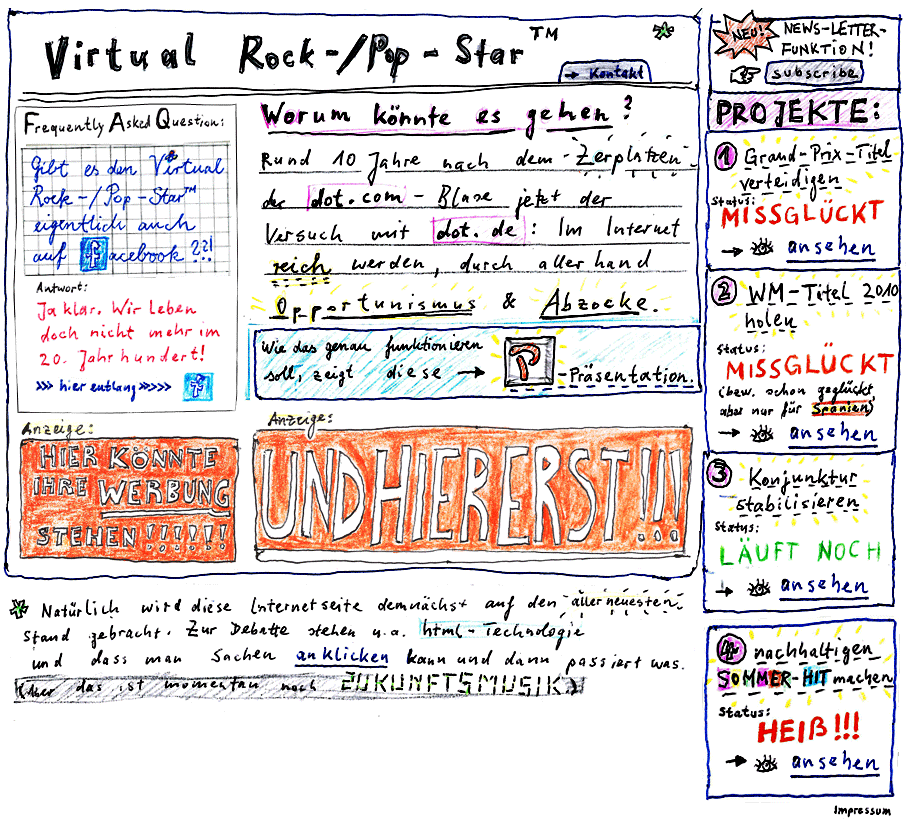 Virtual Rock-/Pop-Star™ *
→ Kontakt
Frequently Asked Question:
Gibt es den Virtual
Rock-/Pop-Star™
eigentlich auch
auf facebook ?!?!
Antwort:
Ja klar. Wir leben
doch nicht mehr im
20. Jahrhundert!
>>> hier entlang >>>>> f
Worum könnte es gehen?
Rund 10 Jahre nach dem Zerplatzen
der dot.com-Blase jetzt der
Versuch mit dot.de: Im Internet
reich werden, durch allerhand
Opportunismus & Abzocke.
Wie das genau funktionieren
soll, zeigt diese → P-Präsentation.
Anzeige:
HIER KÖNNTE
IHRE WERBUNG
STEHEN !!!!!!
Anzeige:
UND HIER ERST!!!
* Natürlich wird diese Internetseite demnächst auf den allerneuesten
Stand gebracht. Zur Debatte stehen u.a. html-Technologie
und dass man Sachen anklicken kann und dann passiert was.
(Aber das ist momentan noch ZUKUNFTSMUSIK)
NEU! NEWS-LETTER-
FUNKTION!
subscribe
PROJEKTE:
1 Grand-Prix-Titel
verteidigen
Status:
MISSGLÜCKT
→ ansehen
2 WM-Titel 2010
holen
Status:
MISSGLÜCKT
(bzw. schon geglückt,
aber nur für Spanien)
→ ansehen
3 Konjunktur
stabilisieren
Status:
LÄUFT NOCH
→ ansehen
4 nachhaltigen
SOMMER-HIT machen
Status:
HEIß!!!
→ ansehen
Impressum